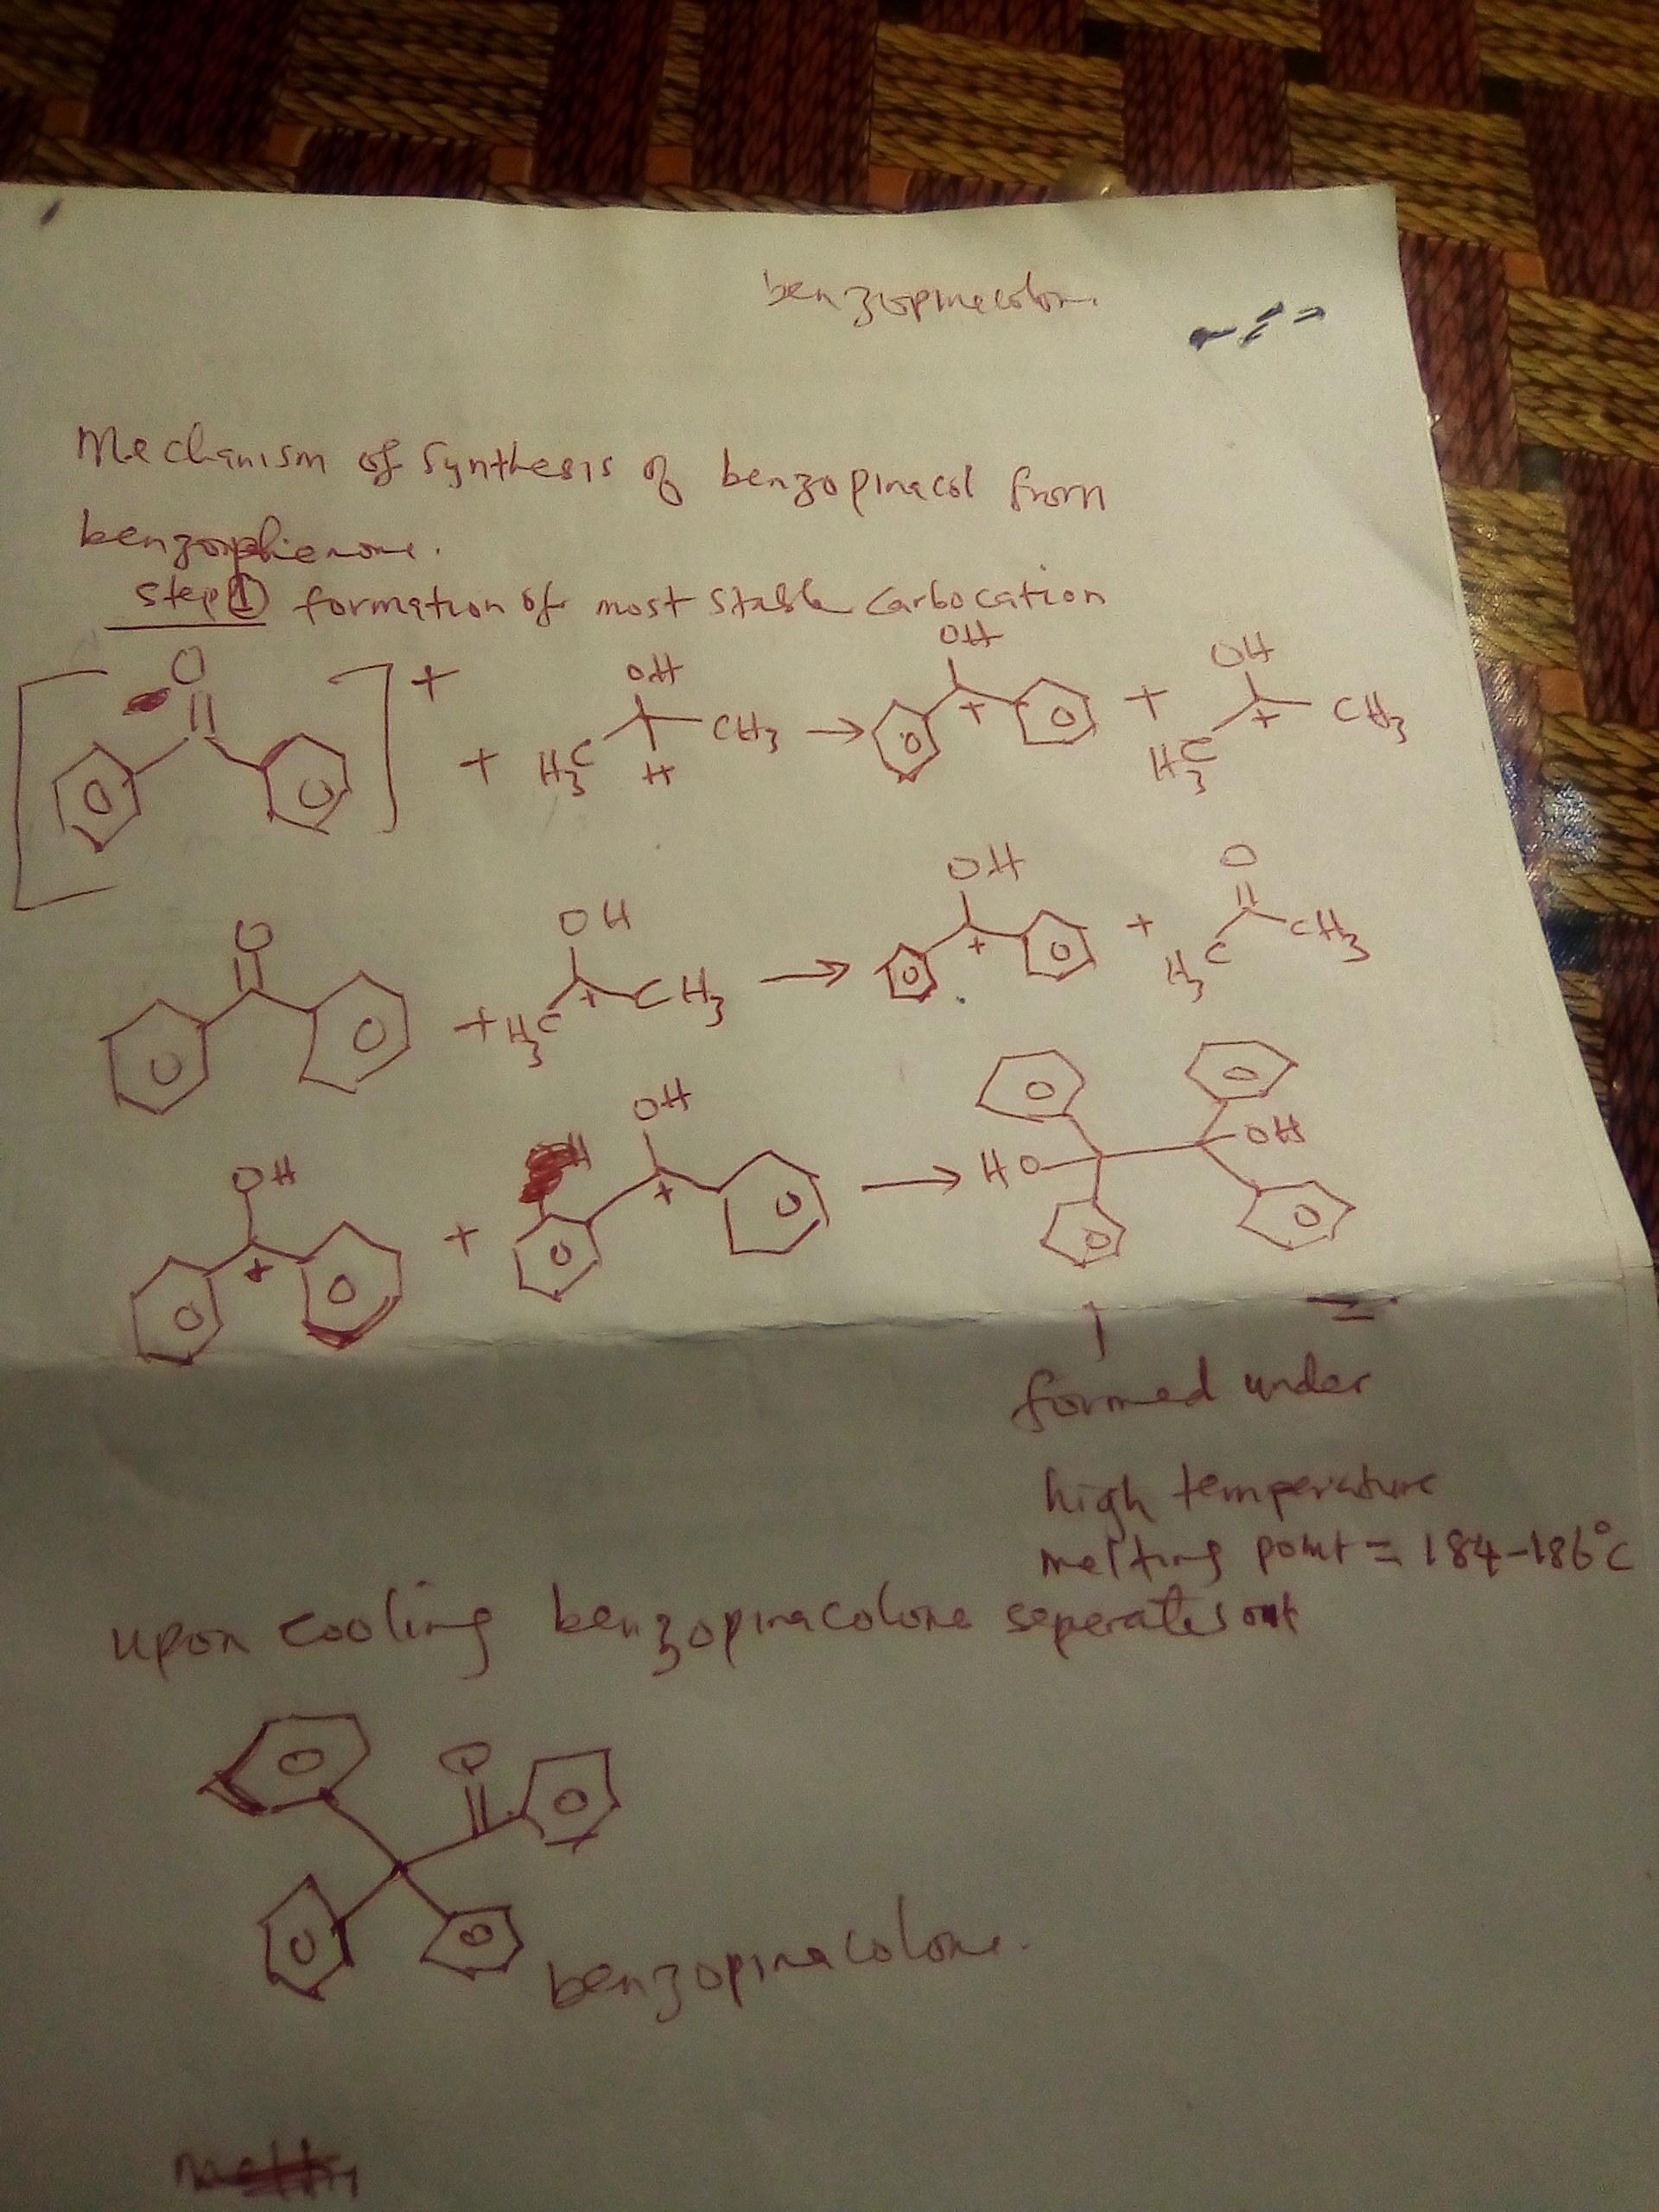 benzopinacolon.
Mechanism of Synthesis of benzopinacol from
benzophenone.
step ① formation of most stable carbocation
O + OH OH OH
+ H3C CH3 → + + H3C + CH3
H
O OH OH O
+ H3C + CH3 → + + H3C CH3
OH OH
+ + + → HO OH
formed under
high temperature
melting point = 184-186°C
upon cooling benzopinacolone seperates out
O
benzopinacolone.